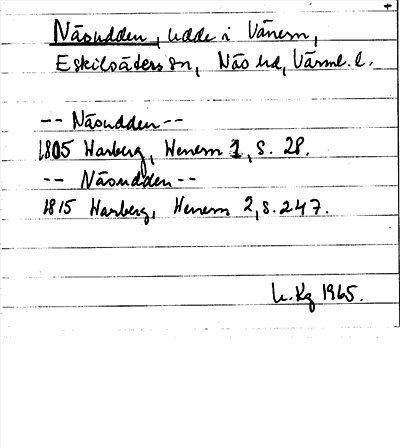 Näsudden, udde i Vänern,
Eskilsäters sn, Näs hd, Värml. l.
-- Näsudden --
1805 Harberg, Henern 1, S. 28.
-- Näsudden --
1815 Harberg, Henern 2, S. 247.
1965.